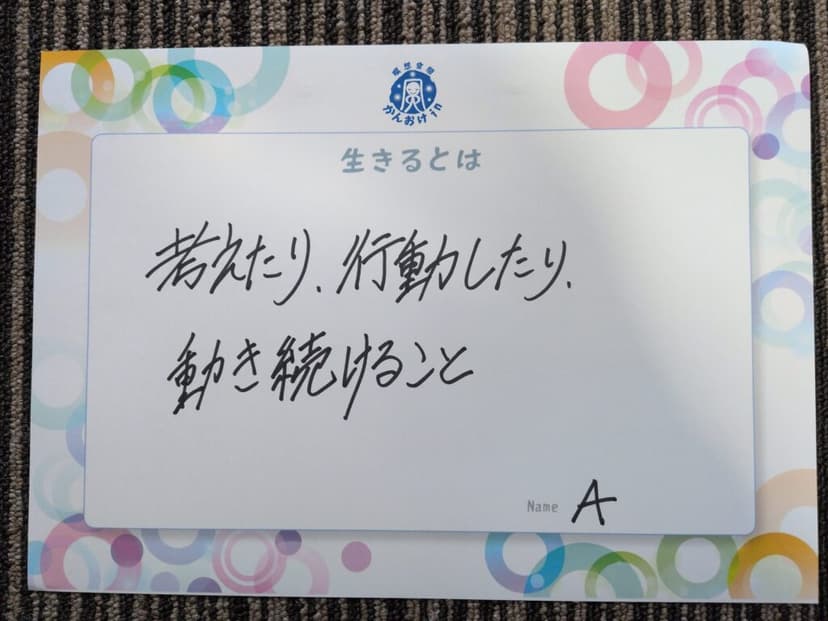 瞑想空間
かんおけin
生きるとは
考えたり、行動したり、
動き続けること
Name A